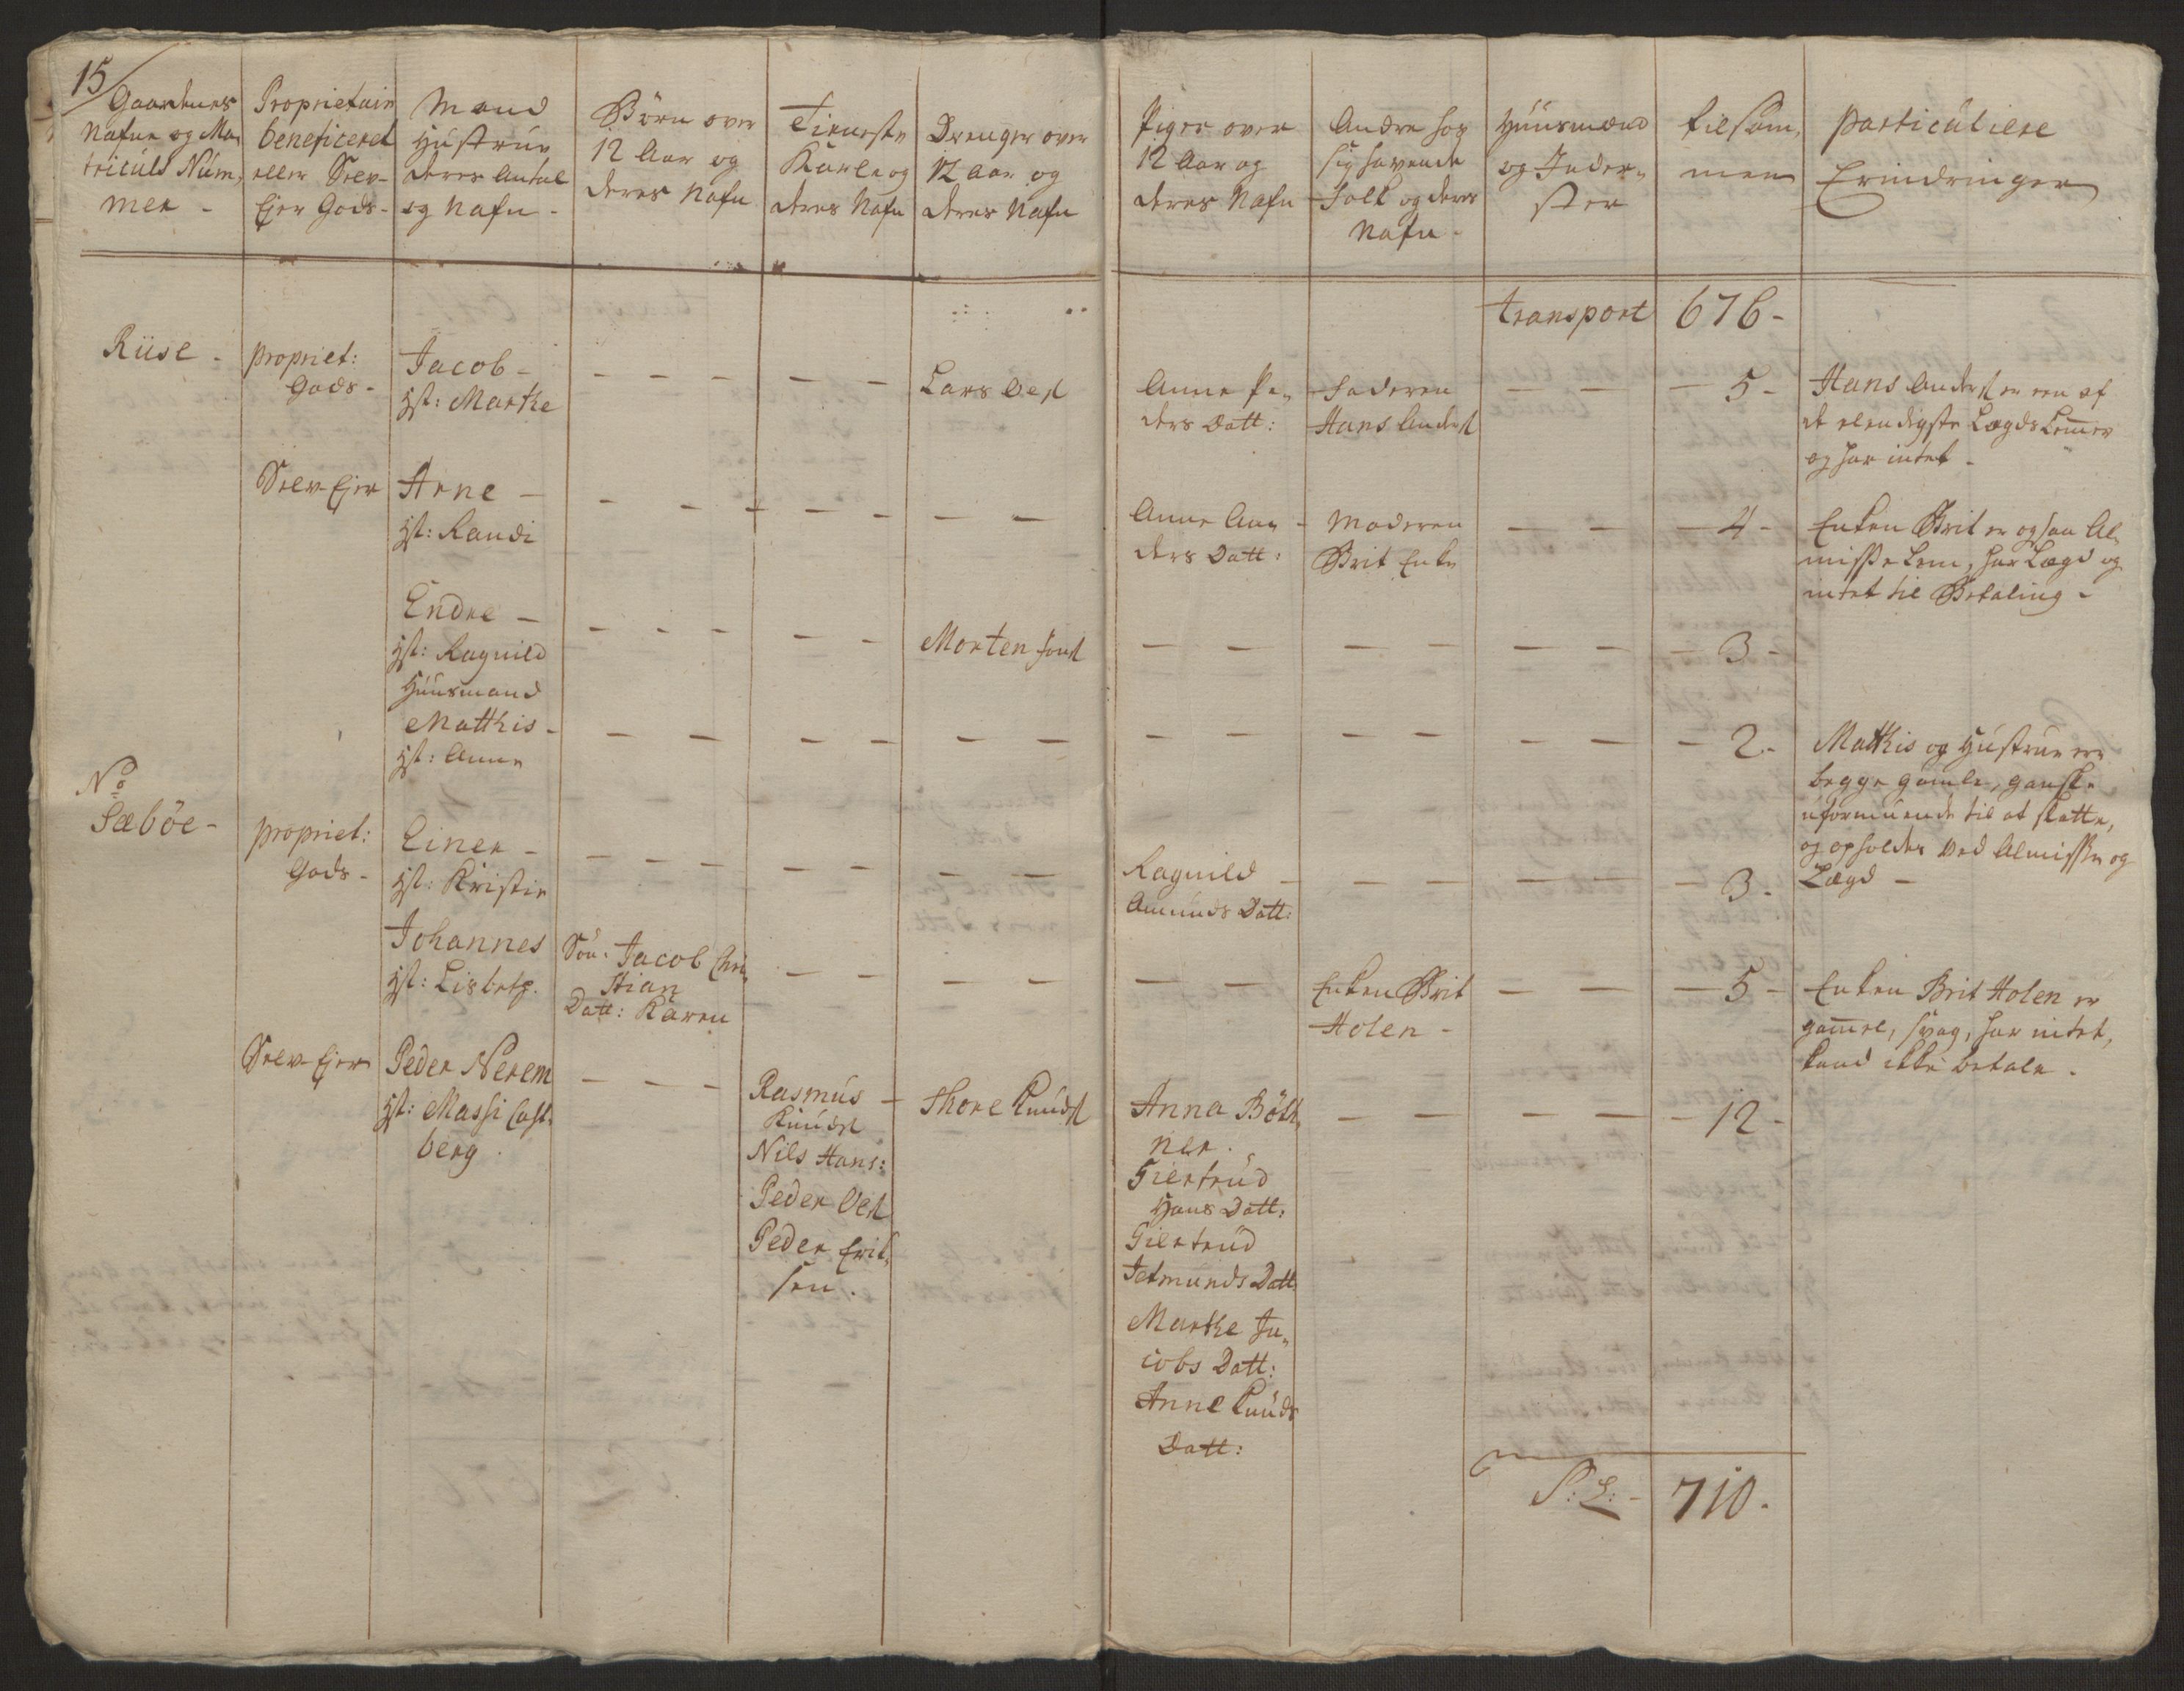 15
Gaardenes
Nafne og Ma,
triculs Num,
mer -
Proprietair
beneficeret
eller Selv-
Ejer Gods -
Mand
Hustrue
deres Antal
og Nafn -
Börn over
12 Aar og
deres Nafn
Tieneste
Karle og
deres Nafn
Drenger over
12 Aar og
deres Nafn
Piger over
12 Aar og
deres Nafn
Andre hos
sig havende
Folk og deres
Nafn -
Huusmænd
og Inder,
ster
tilsam,
men
particuliere
Erindringer
transport 676 -
Riise -
propriet:
Gods -
Jacob -
Hst: Marthe
- - - - -
Lars Oest
Anne Pe,
ders Datt:
Faderen
Hans Anderst
- - - 5 -
Hans Anderst er een af
de elendigste Lægds Lemer
og har intet -
Selv-Ejer
Arne -
Hst: Randi
- - - - - - -
Anne An,
ders Datt:
Moderen
Brit Enke
- - - 4 -
Enken Brit er ogsaa Al,
misse Lem, har Lægd og
intet til Betaling -
Endre -
Hst: Ragnild
Huusmand
- - - - -
Morten
- - - - - - - 3 -
Matthis -
Hst: Anne
- - - - - - - - - - - - - 2 -
Mathis og Hustrue ere
begge gamle, ganske
uformuende til at skatte,
og opholdes ved Almisse og
Lægd -
No
Sæböe -
propriet:
Gods -
Einer -
Hst: Kristie
- - - - - - -
Ragnild -
Amunds Datt:
- - - - - 3 -
Johannes
Hst: Lisbeth.
Sön: Jacob Chri,
stian
Datt: Karen
- - - - - -
Enken Brit
Holen -
- - - 5 -
Enken Brit Holen er
gamel, svag, har intet,
kand ikke betale -
Selv-Ejer
Peder Nerem
Hst: Massi Cast,
berg
- - -
Rasmus -
Knudst
Nils Hans:
Peder Oest
Peder Erik,
sen.
Thore Knudst
Anna Böth,
ner.
Giertrud
Hans Datt:
Giertrud
Jetmunds Datt:
Marthe Ja,
cobs Datt:
Anne Knuds
Datt:
- - - - - 12 -
S: L: - 710 -